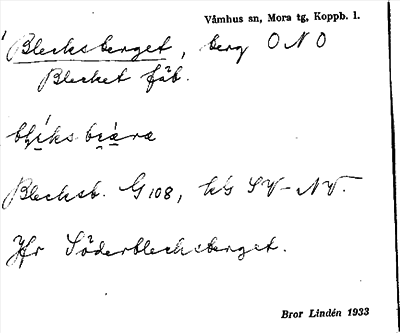 Våmhus sn, Mora tg, Koppb. l.
Blecksberget, berg ONO
Blecket fäb.
Blecksb. G 108, k's SV-NV.
Jfr Söderblecksberget.
Bror Lindén 1933